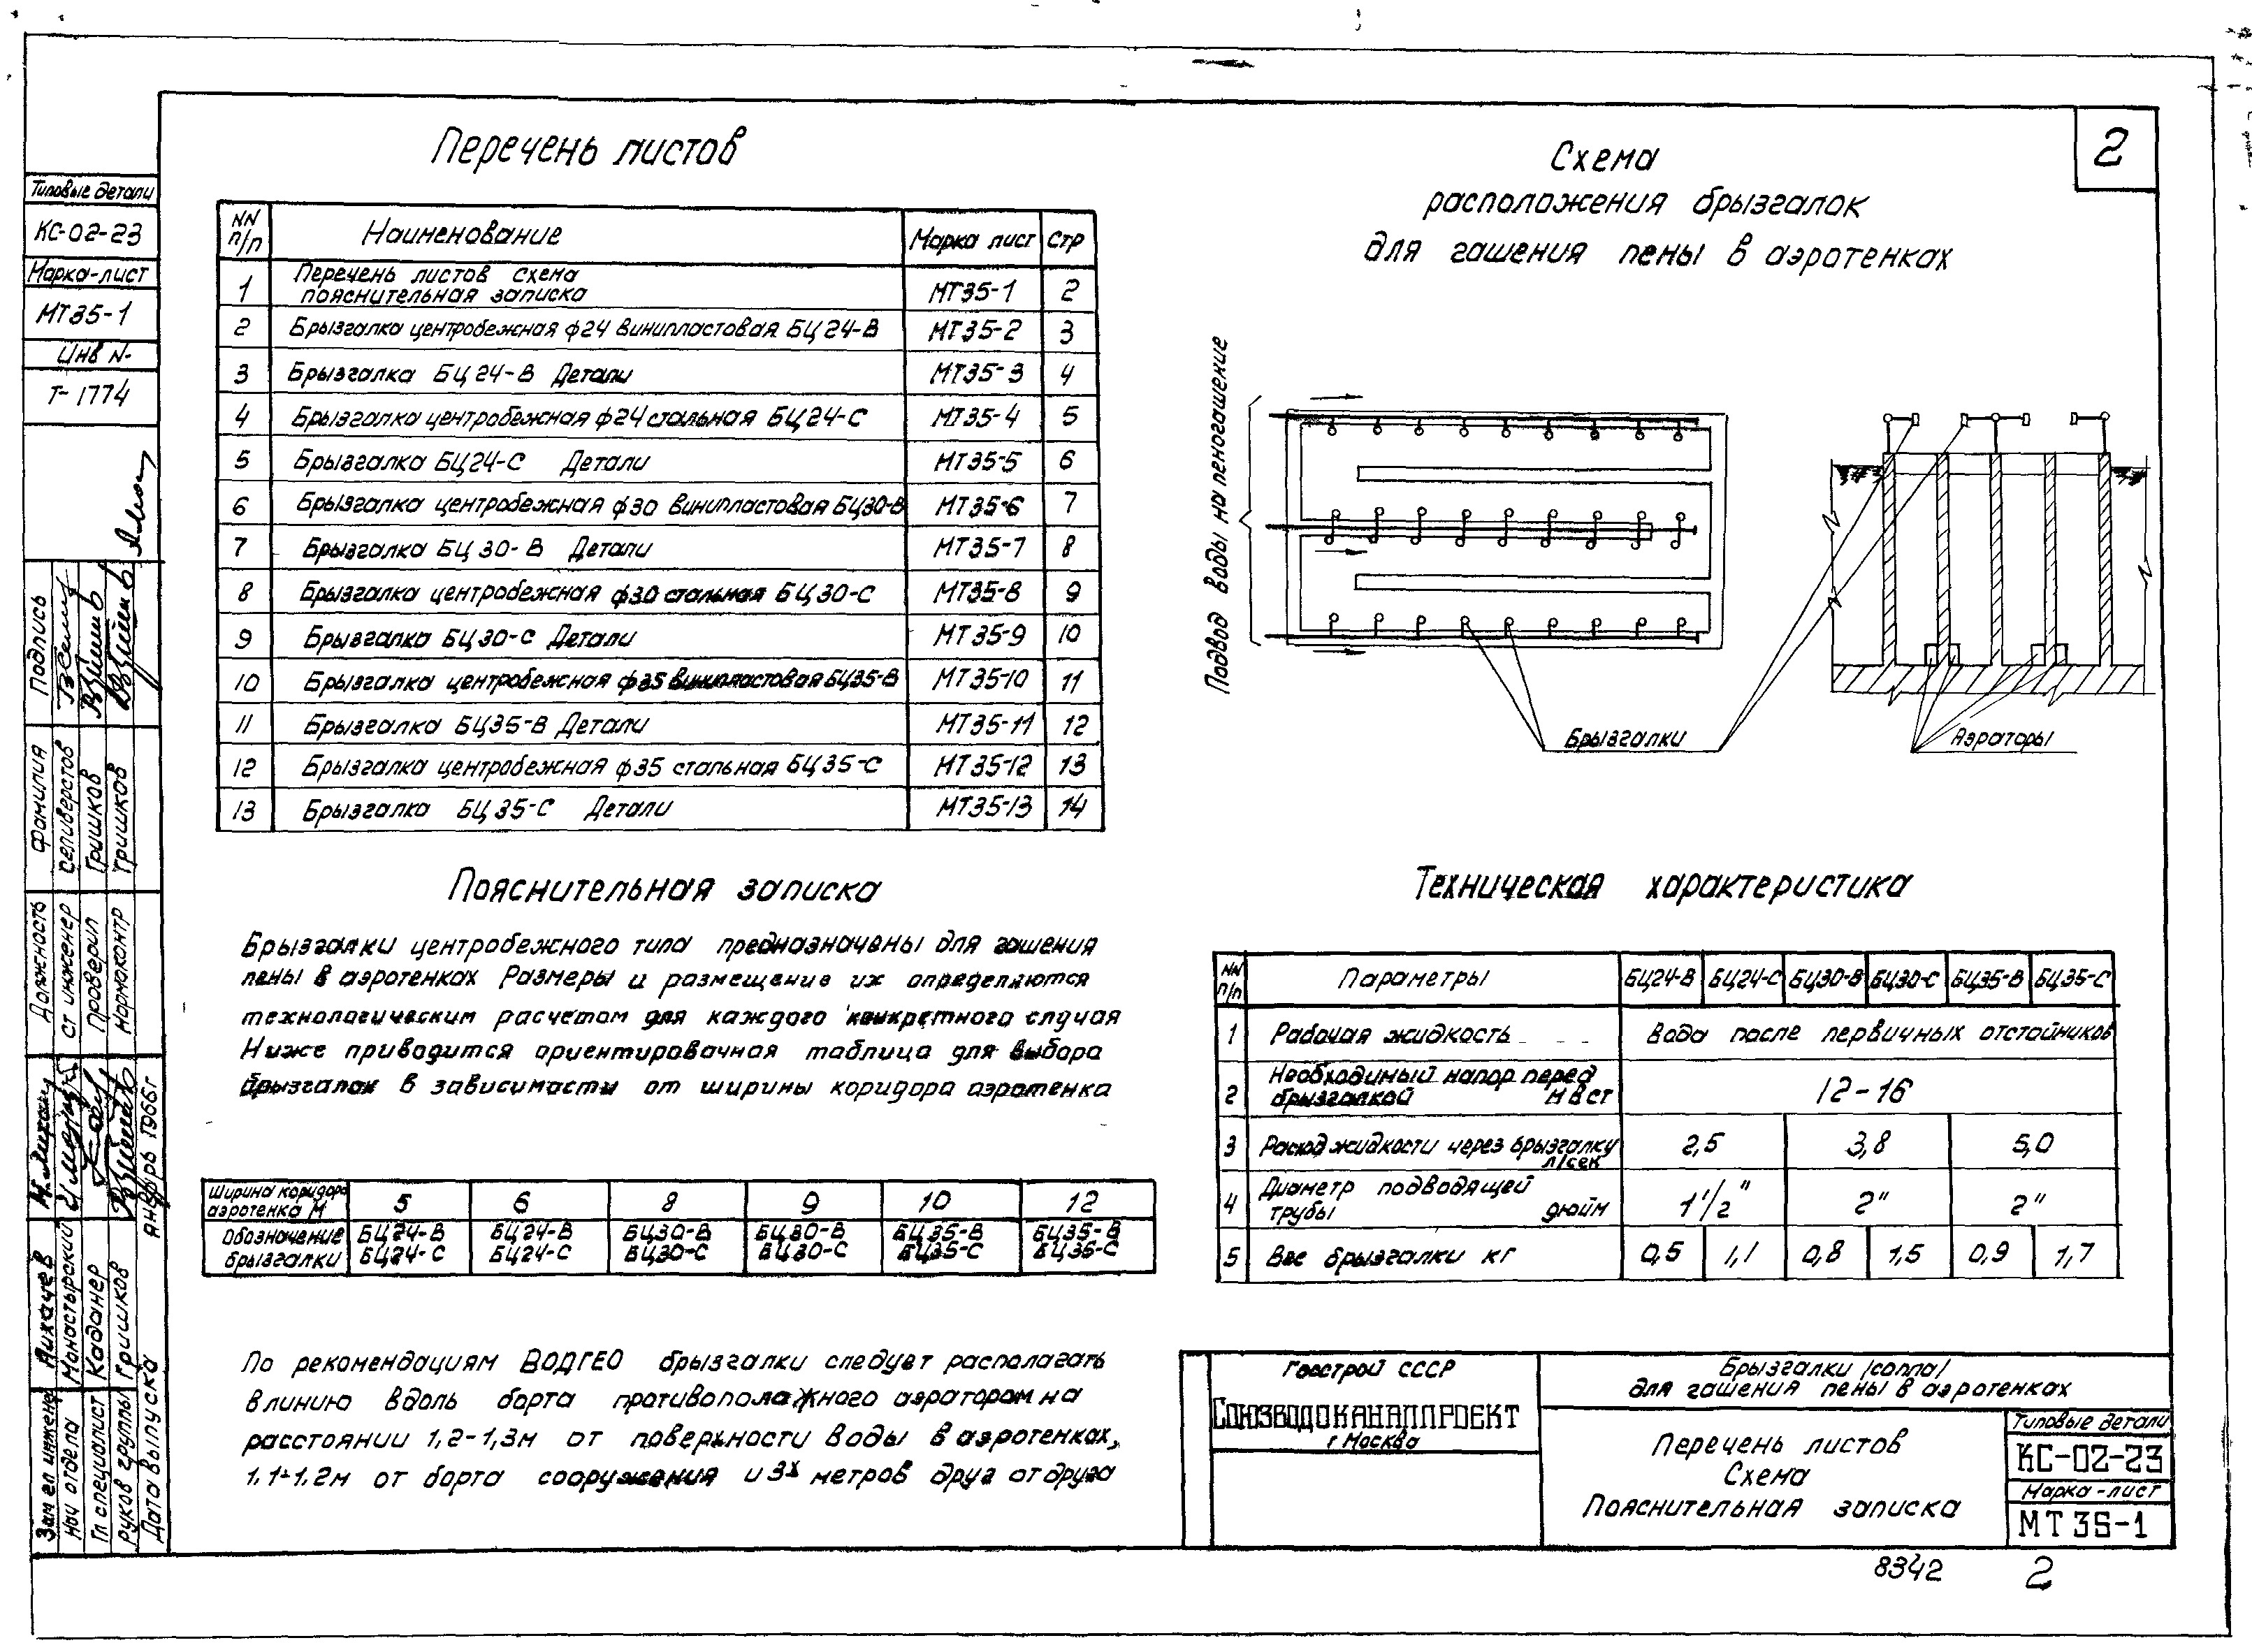 2
Перечень листов
NN п/п Наименование Марка лист Стр
1 Перечень листов схема пояснительная записка МТ35-1 2
2 Брызгалка центробежная ф24 винипластовая БЦ24-В МТ35-2 3
3 Брызгалка БЦ24-В Детали МТ35-3 4
4 Брызгалка центробежная ф24 стальная БЦ24-С МТ35-4 5
5 Брызгалка БЦ24-С Детали МТ35-5 6
6 Брызгалка центробежная ф30 винипластовая БЦ30-В МТ35-6 7
7 Брызгалка БЦ30-В Детали МТ35-7 8
8 Брызгалка центробежная ф30 стальная БЦ30-С МТ35-8 9
9 Брызгалка БЦ30-С Детали МТ35-9 10
10 Брызгалка центробежная ф35 винипластовая БЦ35-В МТ35-10 11
11 Брызгалка БЦ35-В Детали МТ35-11 12
12 Брызгалка центробежная ф35 стальная БЦ35-С МТ35-12 13
13 Брызгалка БЦ35-С Детали МТ35-13 14
Схема
расположения брызгалок
для гашения пены в аэротенках
Подвод воды на пеногашение
Брызгалки
Аэраторы
Пояснительная записка
Брызгалки центробежного типа предназначены для гашения
пены в аэротенках Размеры и размещение их определяются
технологическим расчетом для каждого конкретного случая
Ниже приводится ориентировочная таблица для выбора
брызгалок в зависимости от ширины коридора аэротенка
Ширина коридора аэротенка М 5 6 8 9 10 12
Обозначение брызгалки БЦ24-В БЦ24-В БЦ30-В БЦ30-В БЦ35-В БЦ35-В
БЦ24-С БЦ24-С БЦ30-С БЦ30-С БЦ35-С БЦ35-С
По рекомендациям ВОДГЕО брызгалки следует располагать
в линию вдоль борта противоположного аэраторам на
расстоянии 1,2-1,3м от поверхности воды в аэротенках,
1,1÷1,2м от борта сооружения и 3х метров друг от друга
Техническая характеристика
NN п/п Параметры БЦ24-В БЦ24-С БЦ30-В БЦ30-С БЦ35-В БЦ35-С
1 Рабочая жидкость Вода после первичных отстойников
2 Необходимый напор перед брызгалкой м в ст 12-16
3 Расход жидкости через брызгалку л/сек 2,5 3,8 5,0
4 Диаметр подводящей трубы дюйм 1 1/2" 2" 2"
5 Вес брызгалки кг 0,5 1,1 0,8 1,5 0,9 1,7
Госстрой СССР
Союзводоканалпроект
г Москва
Брызгалки /сопла/
для гашения пены в аэротенках
Перечень листов
Схема
Пояснительная записка
Типовые детали
КС-02-23
Марка-лист
МТ35-1
8342 2
Типовые детали
КС-02-23
Марка-лист
МТ35-1
Инв N-
Т-1774
Должность Фамилия Подпись
Ст инженер Селиверстов
Проверил Гришков
Нормоконтр Гришков
Зам гл инженер Лихачев
Нач отдела Монастырский
Гл специалист Каданер
Руков группы Гришков
Дата выпуска январь 1966г